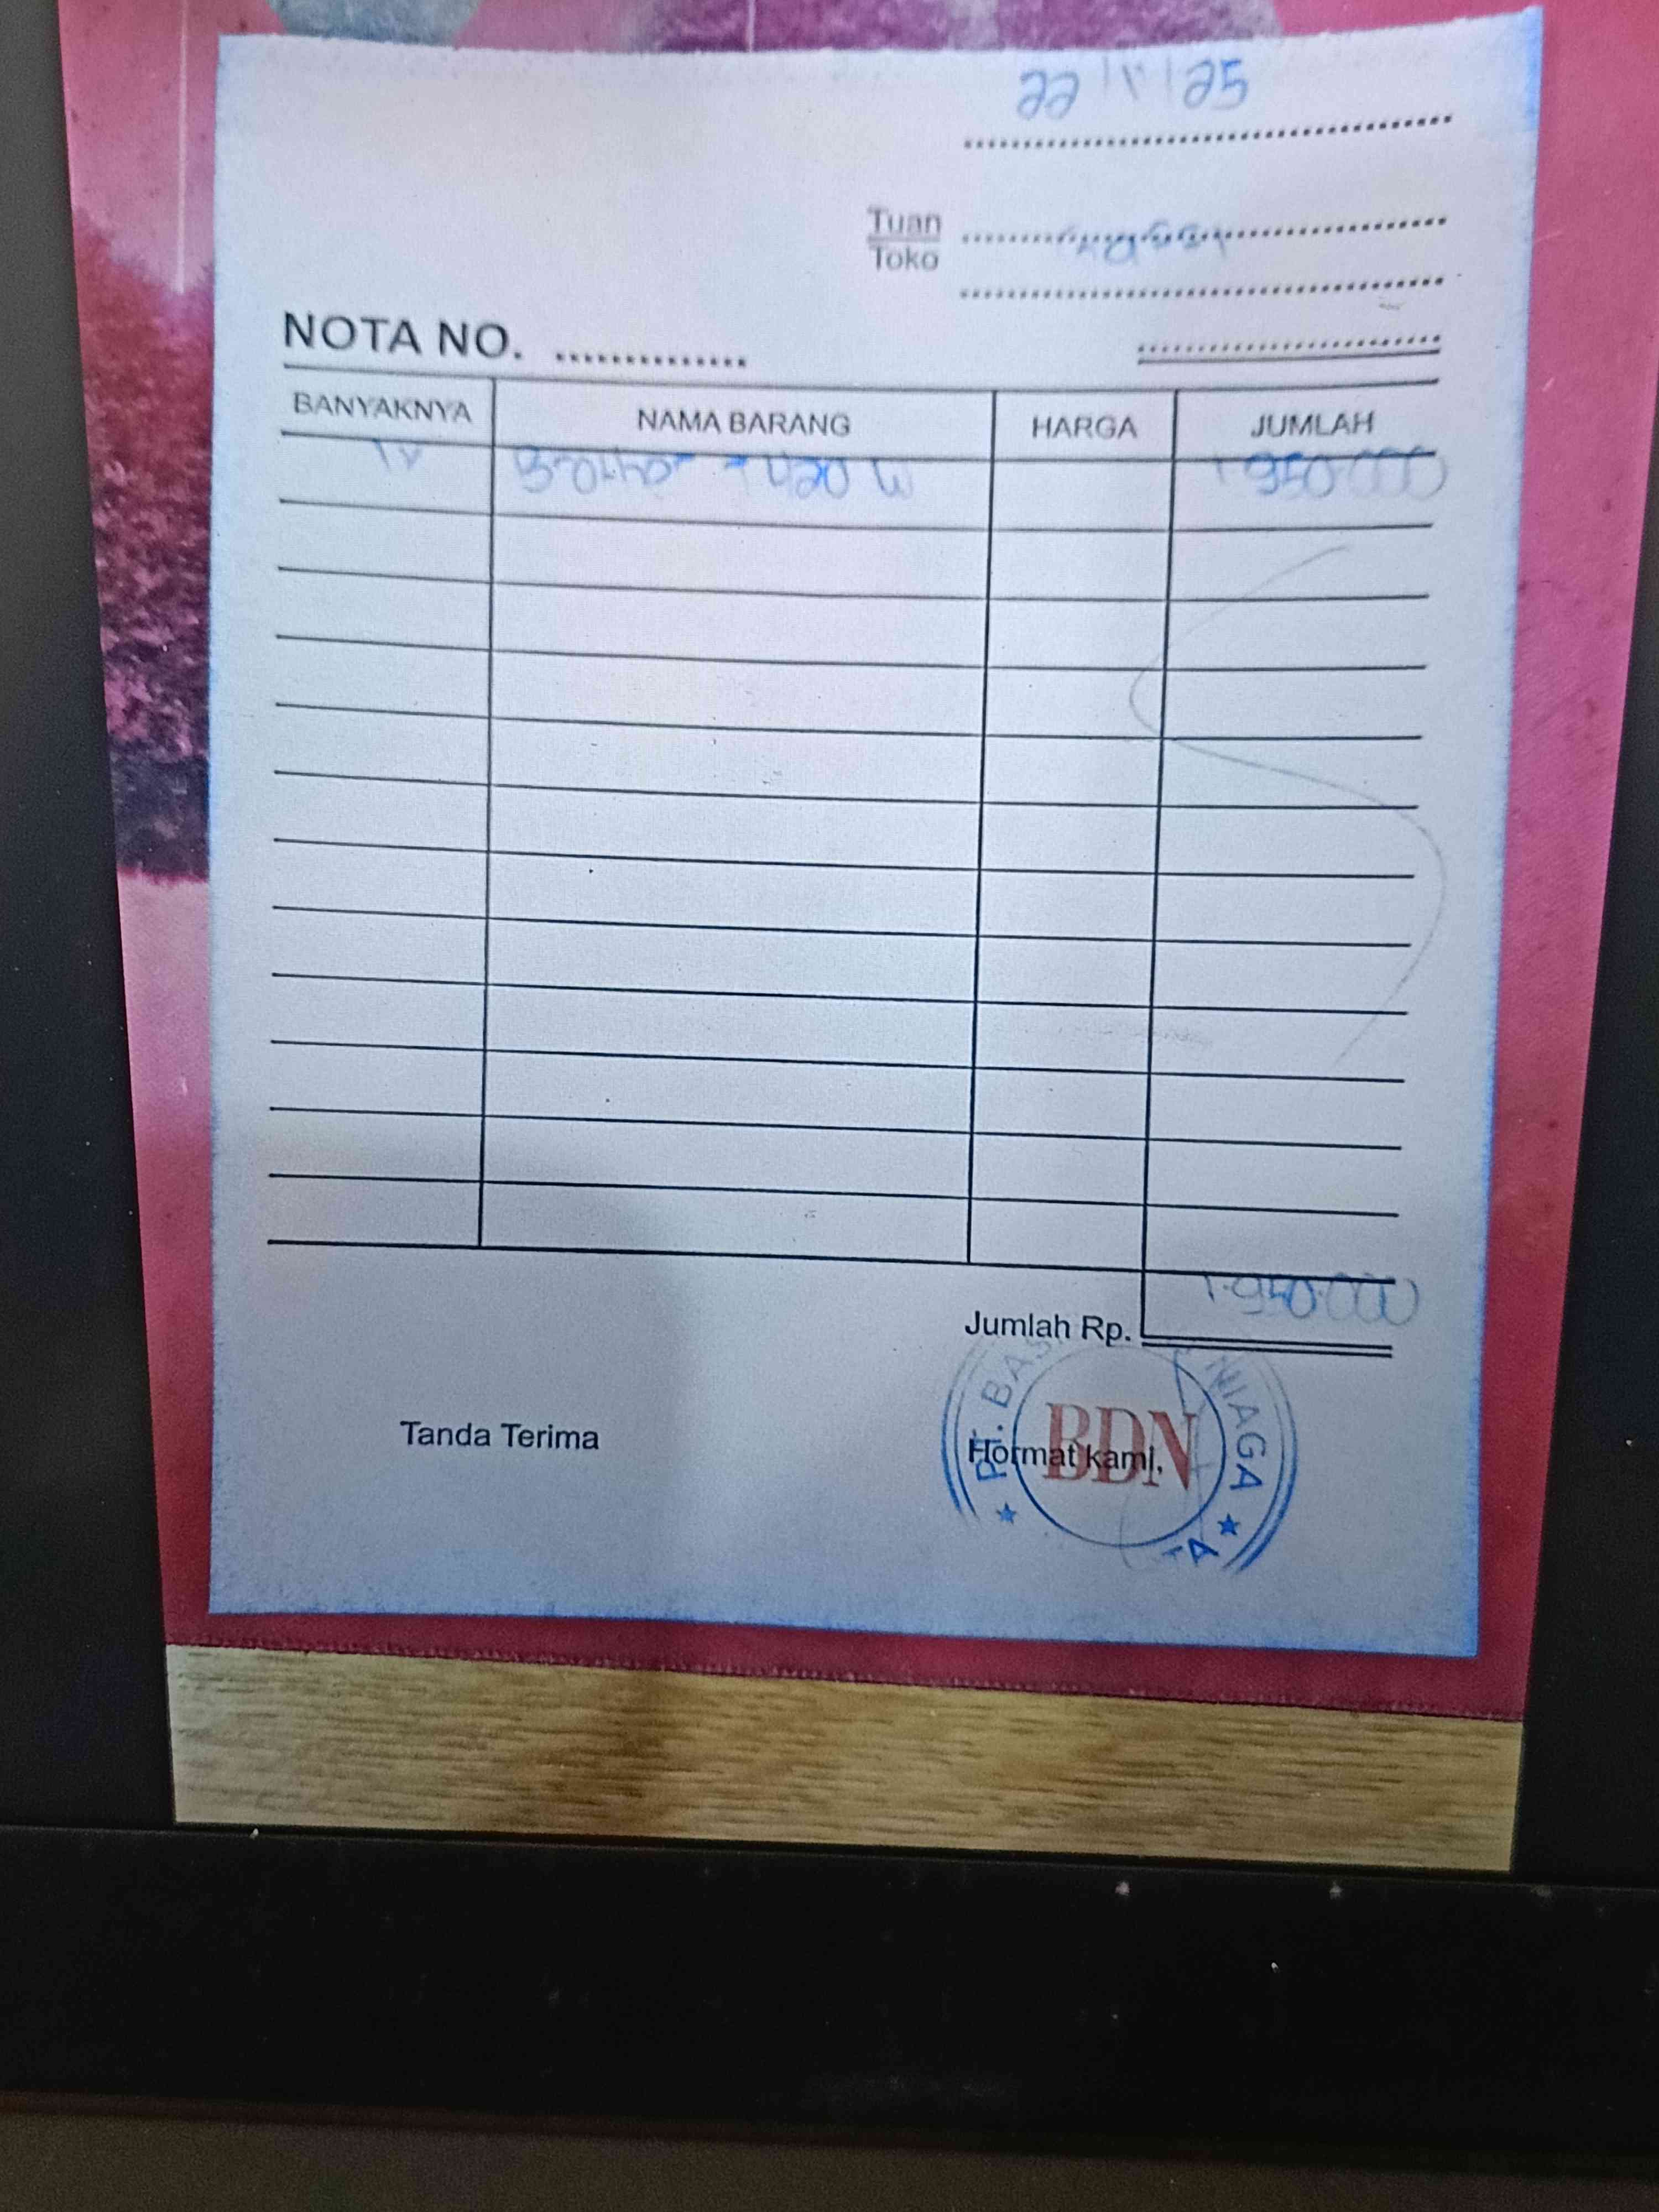 Tuan
Toko
NOTA NO. ..............
BANYAKNYA NAMA BARANG HARGA JUMLAH
1.950.000
1.950.000
Jumlah Rp.
Tanda Terima
Hormat kami,
PT. BAS NIAGA
BDN
TA